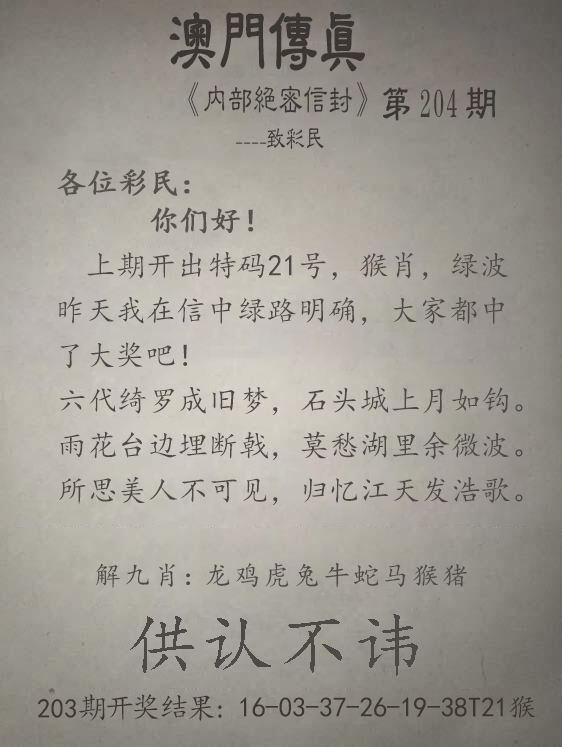 澳門傳眞
《内部絕密信封》第204期
----致彩民
各位彩民：
你们好！
上期开出特码21号，猴肖，绿波
昨天我在信中绿路明确，大家都中
了大奖吧！
六代绮罗成旧梦，石头城上月如钩。
雨花台边埋断戟，莫愁湖里余微波。
所思美人不可见，归忆江天发浩歌。
解九肖：龙鸡虎兔牛蛇马猴猪
供认不讳
203期开奖结果：16-03-37-26-19-38T21猴